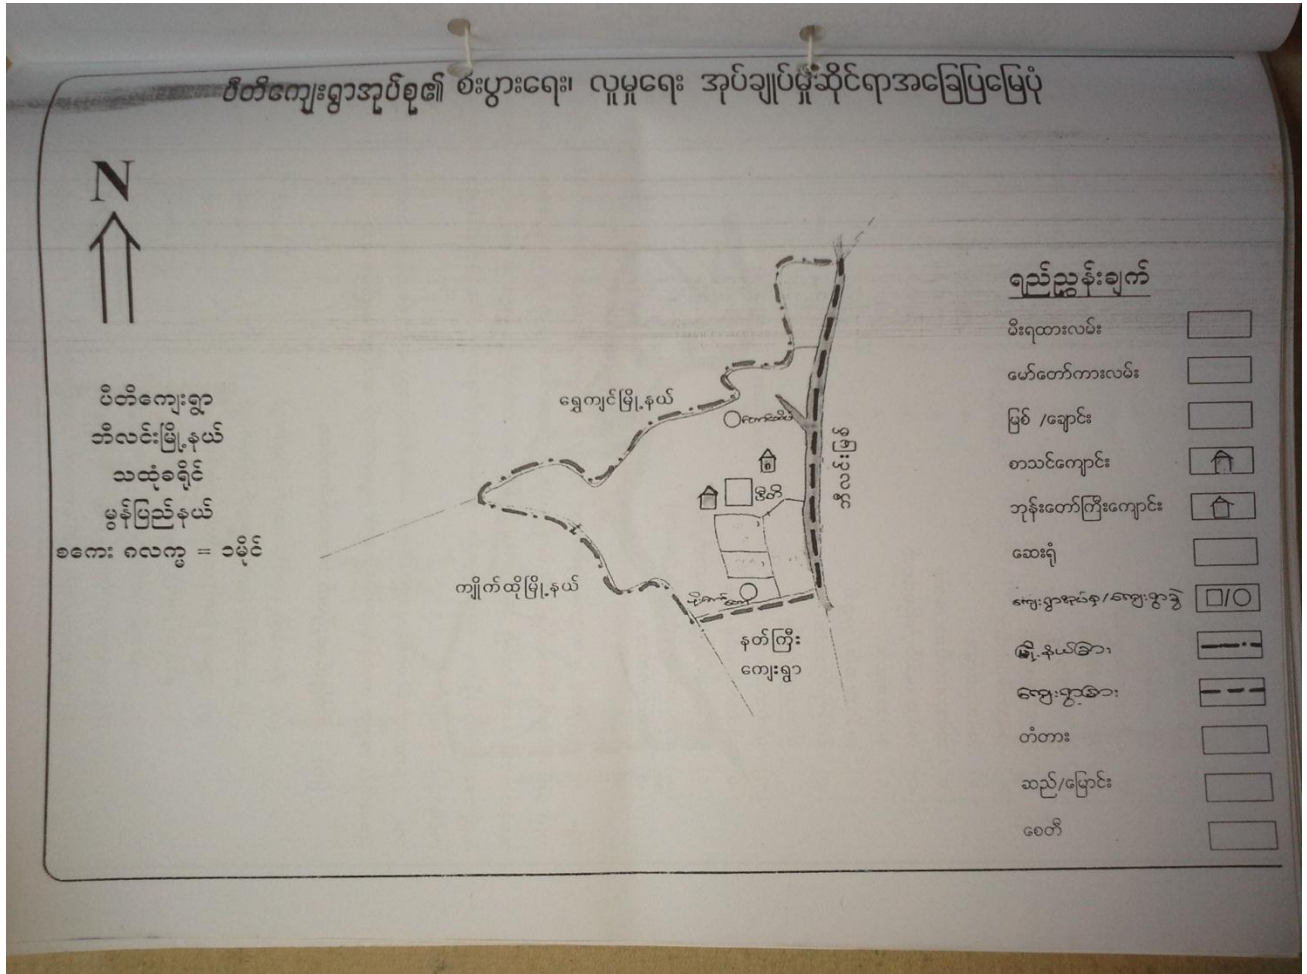 ပီတိကျေးရွာအုပ်စု၏ စီးပွားရေး၊ လူမှုရေး အုပ်ချုပ်မှုဆိုင်ရာအခြေပြမြေပုံ
N
ပီတိကျေးရွာ
ဘီလင်းမြို့နယ်
သထုံခရိုင်
မွန်ပြည်နယ်
စကေး ၈လက္မ = ၁မိုင်
ရွှေကျင်မြို့နယ်
ပီတိ
ဘီလင်းမြစ်
ကျိုက်ထိုမြို့နယ်
နတ်ကြီး
ကျေးရွာ
ရည်ညွှန်းချက်
မီးရထားလမ်း
မော်တော်ကားလမ်း
မြစ် /ချောင်း
စာသင်ကျောင်း
ဘုန်းတော်ကြီးကျောင်း
ဆေးရုံ
ကျေးရွာအုပ်စု/ကျေးရွာ
မြို့နယ်ခြား
ကျေးရွာခြား
တံတား
ဆည်/မြောင်း
စေတီ